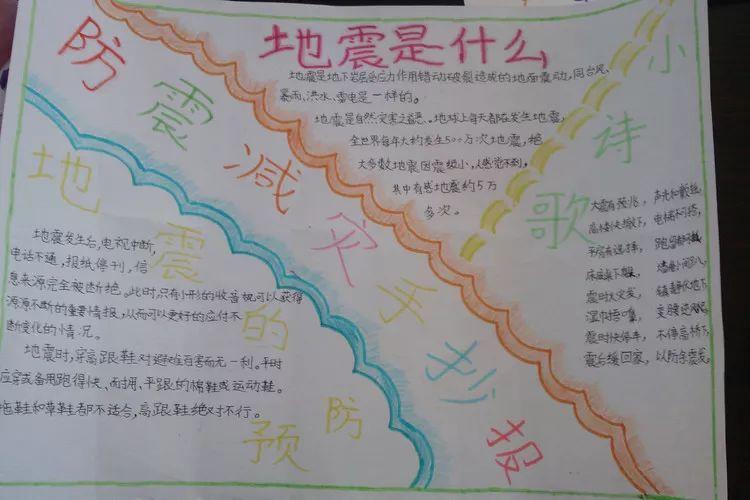 防震减灾手抄报
地震是什么
地震是地下岩层受应力作用错动破裂造成的地面震动,同台风、
暴雨、洪水、雷电是一样的。
地震是自然灾害之一。地球上每天都在发生地震,
全世界每年大约发生500万次地震,绝
大多数地震因震级小,人感觉不到,
其中有感地震约5万
多次。
小诗歌
大震有预兆,声光和
高楼快撤下,电梯不可搭,
震时
震时快停车,不停高桥下,
震后缓回家,以防余震发。
地震的预防
地震发生后,电视中断,
电话不通,报纸停刊,信
息来源完全被断绝。此时,只有小形的收音机可以获得
源源不断的重要情报,从而可以更好的应付不
断变化的情况。
地震时,穿高跟鞋对避难住百害而无一利。平时
应穿或备用跑得快、耐拥、平跟的棉鞋或运动鞋。
拖鞋和草鞋都不适合,高跟鞋绝对不行。